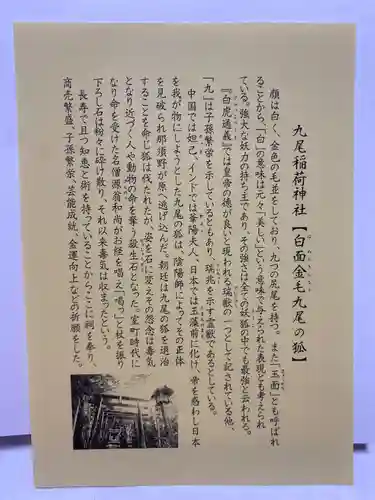 九尾稲荷神社【白面金毛九尾の狐】
顔は白く、金色の毛並をしており、九つの尻尾を持つ。また「玉面」とも呼ばれ
ることから、「白」の意味は元々「美しい」という意味で与えられた表現とも考えられ
ている。強大な妖力の持ち主であり、その強さは全ての妖狐の中でも最強と云われる。
『白虎通義』では皇帝の徳が良いと現われる瑞獣の一つとして記されている他、
「九」は子孫繁栄を示しているともあり、瑞兆を示す霊獣であるとしている。
中国では妲己、インドでは華陽夫人、日本では玉藻前に化け、帝を惑わし日本
を我が物にしようとした九尾の狐は、陰陽師によってその正体
を見破られ那須野が原へ逃げ込んだ。朝廷は九尾の狐を退治
することを命じ狐は伐たれたが、姿を石に変えその怨念は毒気
となり近づく人や動物の命を奪う殺生石となった。室町時代に
なり命を受けた名僧源翁和尚がお経を唱え「喝っ」と杖を振り
下ろし石は粉々に砕け散り、それ以来毒気は収まったという。
長寿で且つ知恵と術を持っていることからここに祠を奉り、
商売繁盛、子孫繁栄、芸能成就、金運向上などの祈願をした。